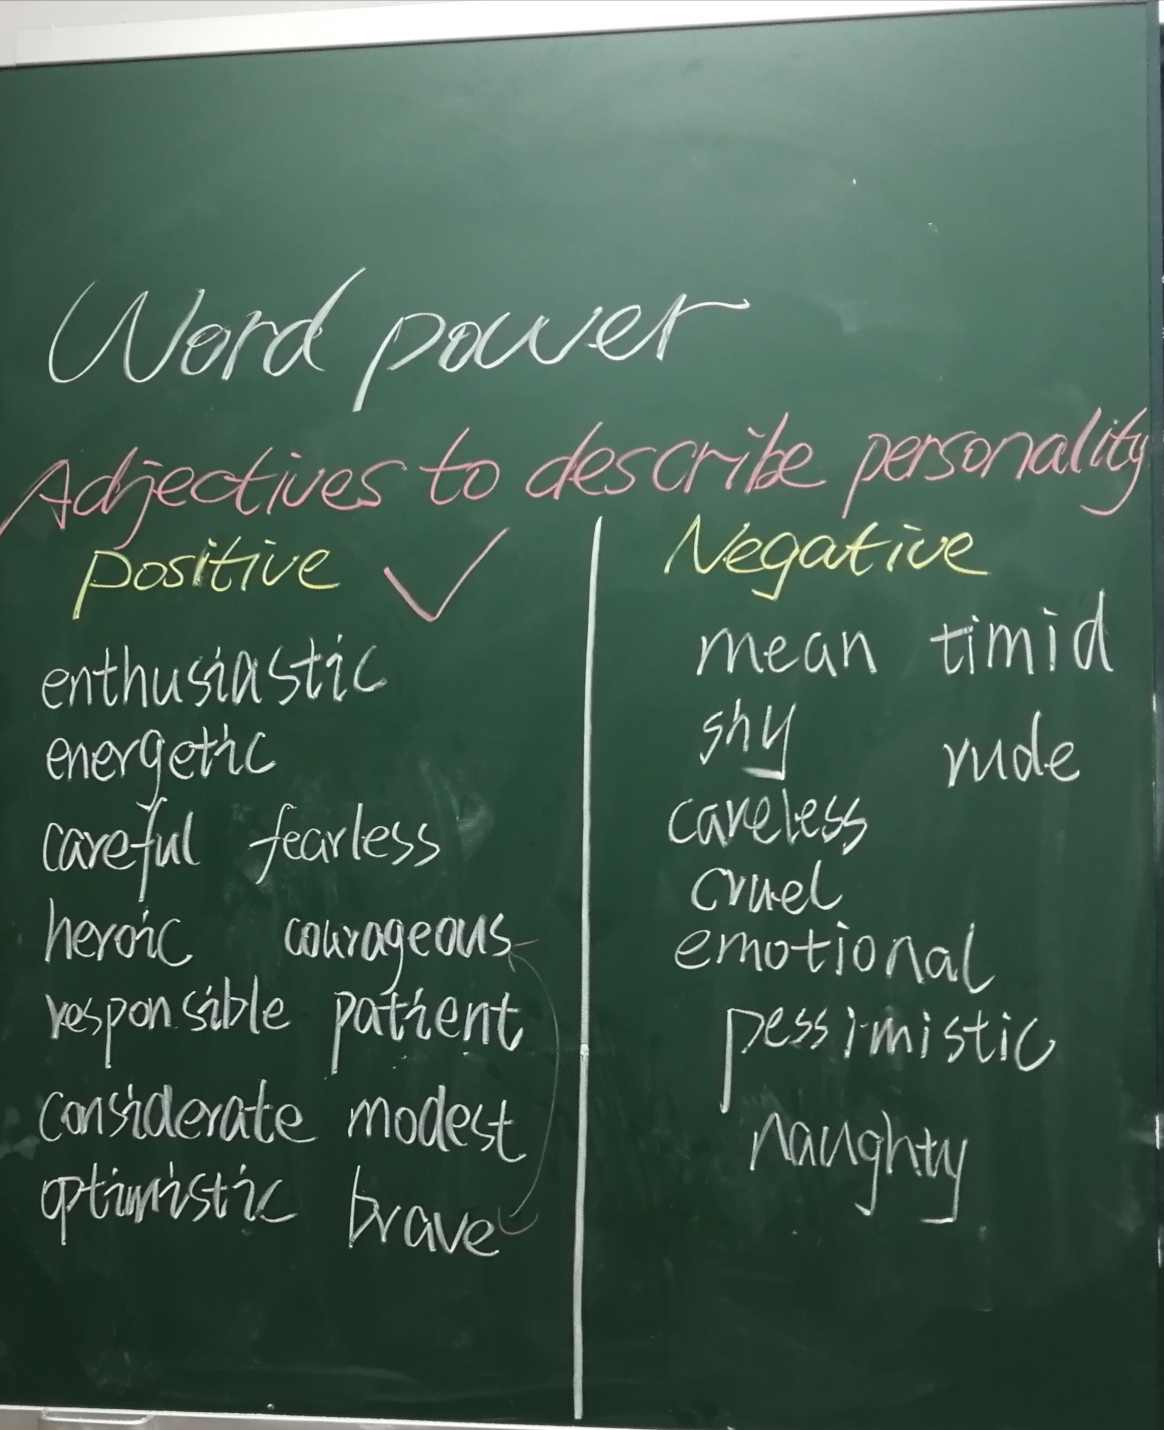 Word power
Adjectives to describe personality
positive
enthusiastic
energetic
careful fearless
heroic courageous
responsible patient
considerate modest
optimistic brave
Negative
mean timid
shy rude
careless
cruel
emotional
pessimistic
naughty